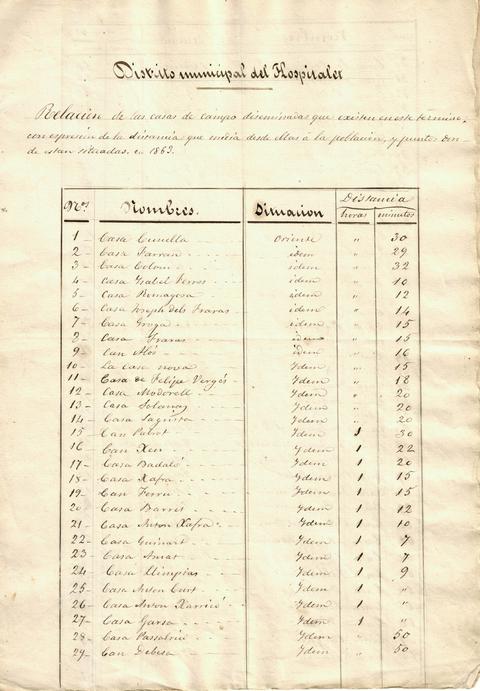 Distrito municipal del Hospitalet
Relacion de las casas de campo diseminadas que existen en este termino,
con espresion de la distancia que media desde ellas á la poblacion, y puntos don-
de estan situadas. en 1863.
Nos. Nombres. Situacion Distancia
horas minutos
1 - Casa Cunella Oriente " 30
2 - Casa Parran idem " 29
3 - Casa Colom idem " 32
4 - Casa Ysabel Ferros idem " 10
5 - Casa Romagosa idem " 12
6 - Casa Joseph dels Frares idem " 14
7 - Casa Groga idem " 15
8 - Casa Frares idem " 15
9 - Can Alós idem " 16
10 - La casa nova Ydem " 15
11 - Casa de Felipe Vergés Ydem " 18
12 - Casa Modorell Ydem " 20
13 - Casa Solanas Ydem " 20
14 - Casa Sagrista Ydem " 20
15 - Can Pubot Ydem 1 30
16 Can Xeu Ydem 1 22
17 - Casa Badaló Ydem 1 20
18 - Casa Xafra Ydem 1 15
19 - Can Ferru Ydem 1 15
20 Casa Barris Ydem 1 12
21 - Casa Anton Xafra Ydem 1 10
22 - Casa Guinart Ydem 1 7
23 Casa Amat Ydem 1 7
24 Casa Climpias Ydem 1 9
25 - Casa Anton Curt Ydem 1 "
26 - Casa Anton Xarricó Ydem 1 "
27 - Casa Garsa Ydem 1 "
28 - Casa Passabriu Ydem " 50
29 - Can Debesa Ydem " 50